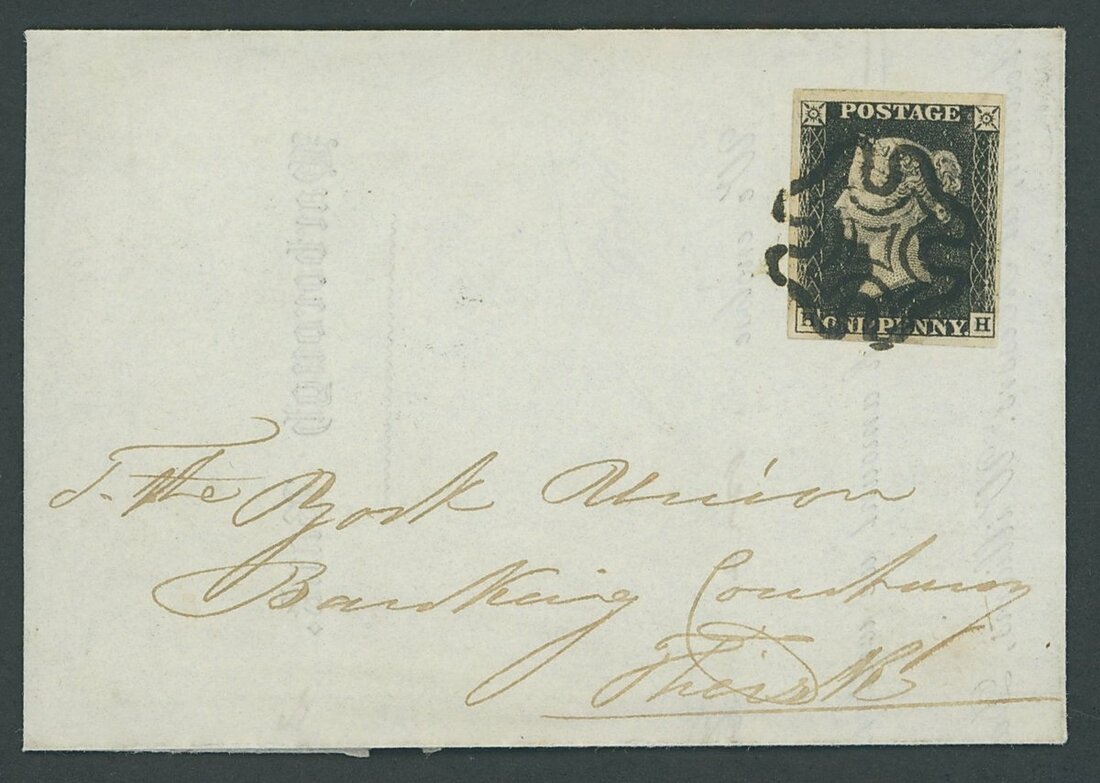 POSTAGE
H ONE PENNY. H
To the York Union
Banking Company
Thirsk